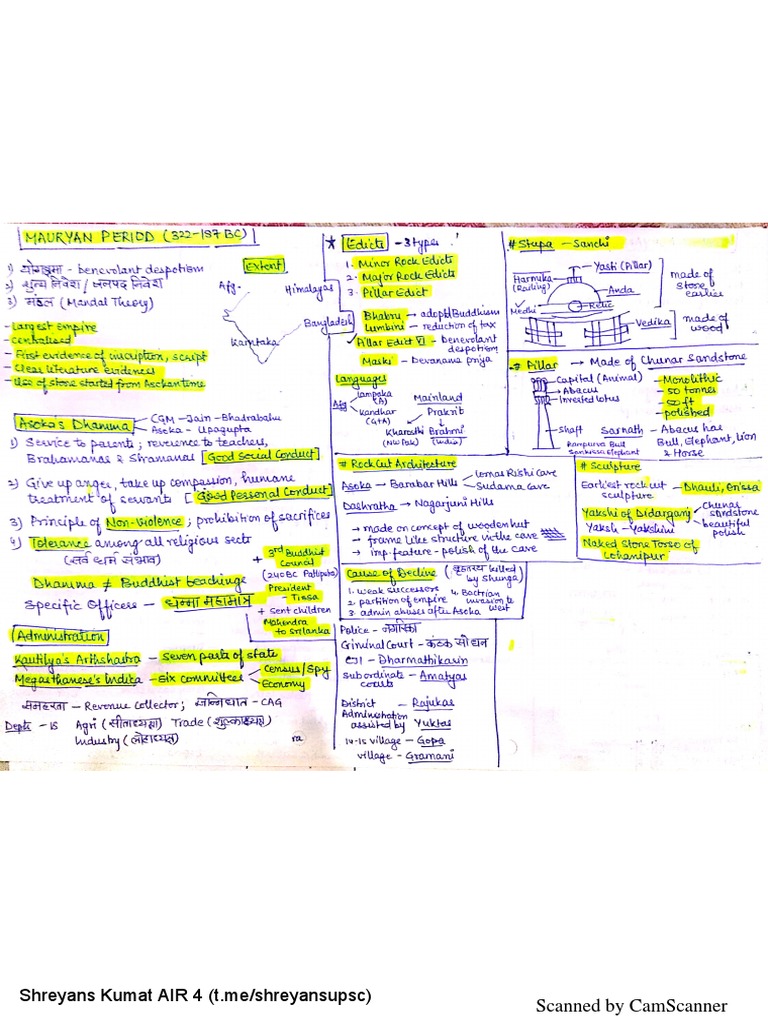 MAURYAN PERIOD (322-187 BC)
1) योगक्षेमा - benevolant despotism
2) शून्य निवेश / जनपद निवेश
3) मंडल (Mandal Theory)
- Largest Empire
- centralised
- First evidence of inscription, script
- Clear literature evidences
- Use of stone started from Ashokan time
Extent
Afg.
Himalayas
Bangladesh
Karnataka
Asoka's Dhamma
CGM - Jain - Bhadrabahu
Asoka - Upagupta
1) Service to parents; reverence to teachers,
Brahamanas & Shramanas [Good Social Conduct]
2) Give up anger, take up compassion, humane
treatment of servants [Good Personal Conduct]
3) Principle of Non-violence; prohibition of sacrifices
4) Tolerance among all religious sects
(सर्व धर्म संभाव)
Dhamma ≠ Buddhist teachings
Specific Officers - धम्मा महामात्र
+ 3rd Buddhist
Council
(240BC Patliputra)
President
- Tissa
+ sent children
Mahendra
to Srilanka
Administration
Kautilya's Arthshastra - seven parts of state
Megasthanese's Indika - Six committees
Census/Spy
Economy
समहरता - Revenue Collector; सन्निधाता - CAG
Depts - 15 Agri (सीताध्यक्ष) Trade (शुल्काध्यक्ष)
Industry (लोहाध्यक्ष)
ra
★ Edicts - 3 types
1. Minor Rock Edicts
2. Major Rock Edicts
3. Pillar Edict
Bhabru → adopt Buddhism
Lumbini - reduction of tax
Pillar Edict VI - Benevolant
despotism
Maski - Devanama priya
Languages
Afg
Lampaka
(A)
Kandhar
(G+A)
Mainland
Prakrit
Kharosthi
(NW Pak)
Brahmi
(India)
# Rock Cut Architecture
Asoka - Barabar Hills
Lomas Rishi Cave
Sudama Cave
Dashratha → Nagarjuni Hills
→ made on concept of wooden hut
→ frame like structure in the cave
→ imp. feature - polish of the cave
Cause of Decline (वृहद्रथ killed
by Shunga)
1. weak successors
2. partition of empire
3. admin abuses after Asoka
4. Bactrian
invasion to
west
Police - नगरिका
Criminal Court - कंटक सोधन
CJI - Dharmathikarin
subordinate - Amatyas
courts
District - Rajukas
Administration
assisted by Yuktas
10-15 village - Gopa
village - Gramani
# Stupa - Sanchi
Yasti (Pillar)
Harmika
(Railing)
Anda
Medhi
Relic
Vedika
made of
stone
earlier
made of
wood
# Pillar → Made of Chunar Sandstone
Capital (Animal)
Abacus
Inverted lotus
Shaft
- Monolithic
- 50 tonnes
- 50 ft
- polished
Sarnath - Abacus has
Bull, Elephant, Lion
& Horse
Rampurva Bull
Sankissa Elephant
# Sculpture
Earliest rock cut - Dhauli, Orissa
sculpture
Yakshi of Didarganj
Yaksh - Yakshini
Chunar
sandstone
beautiful
polish
Naked Stone Torso of
Lohanipur
Shreyans Kumat AIR 4 (t.me/shreyansupsc)
Scanned by CamScanner